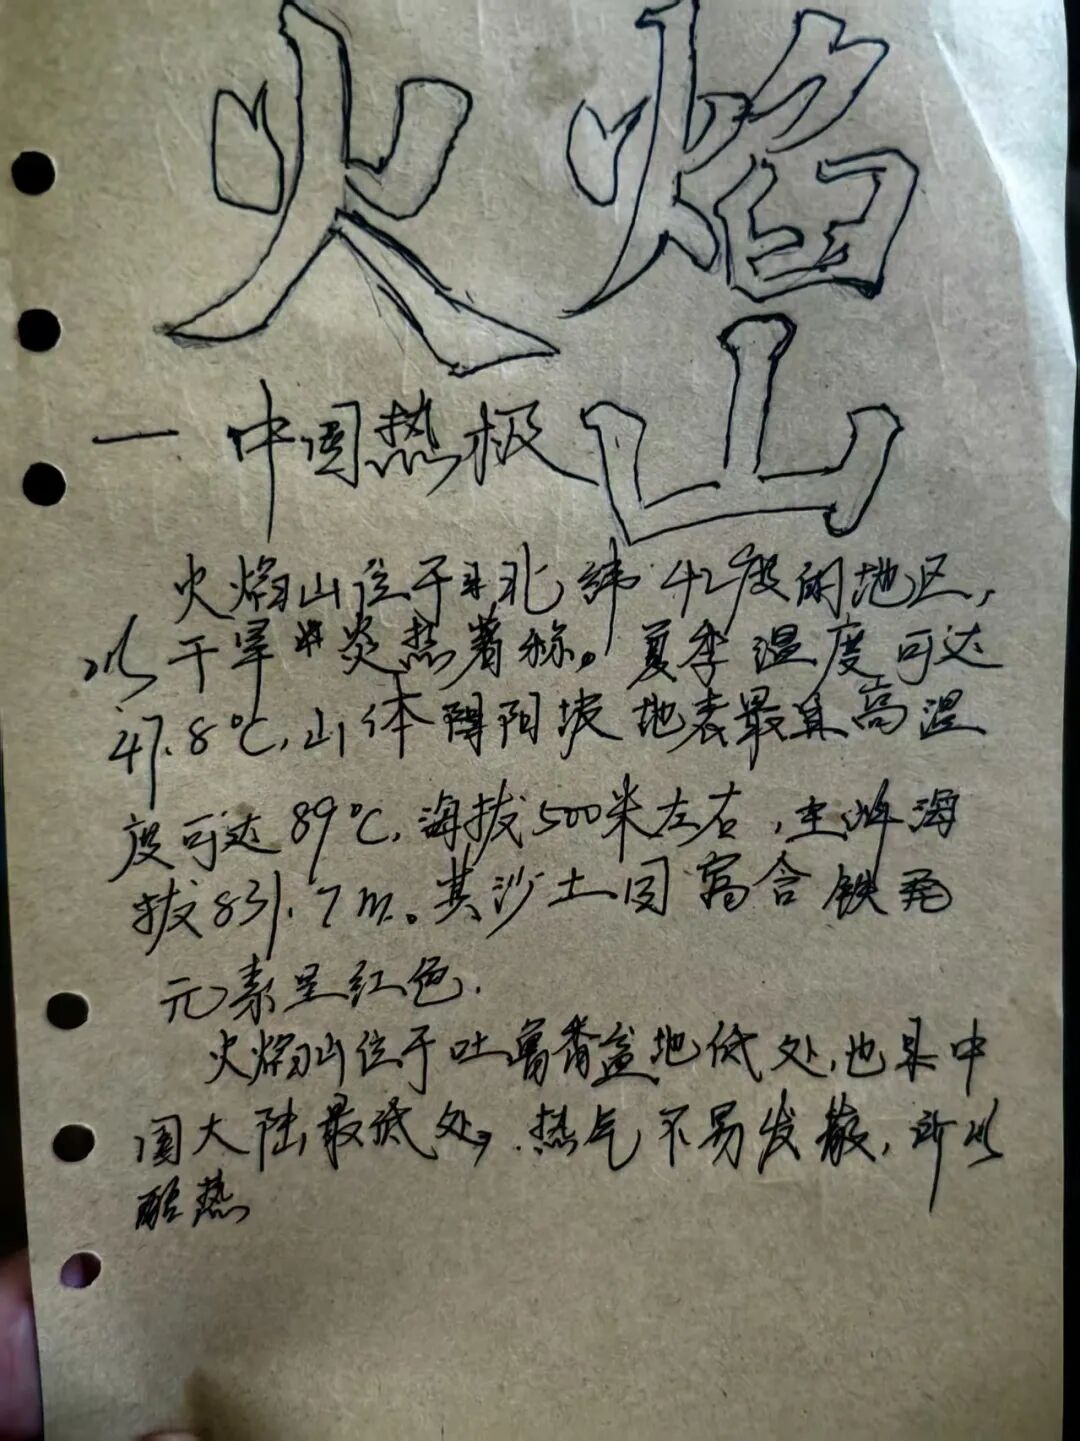 火焰山
一中国热极
火焰山位于北纬42度的地区,
以干旱炎热著称。夏季温度可达
47.8℃,山体阳坡地表最高温
度可达89℃,海拔500米左右,主峰海
拔831.7m。其沙土因富含铁
元素呈红色.
火焰山位于吐鲁番盆地低处,也是中
国大陆最低处,热气不易发散,所以
酷热